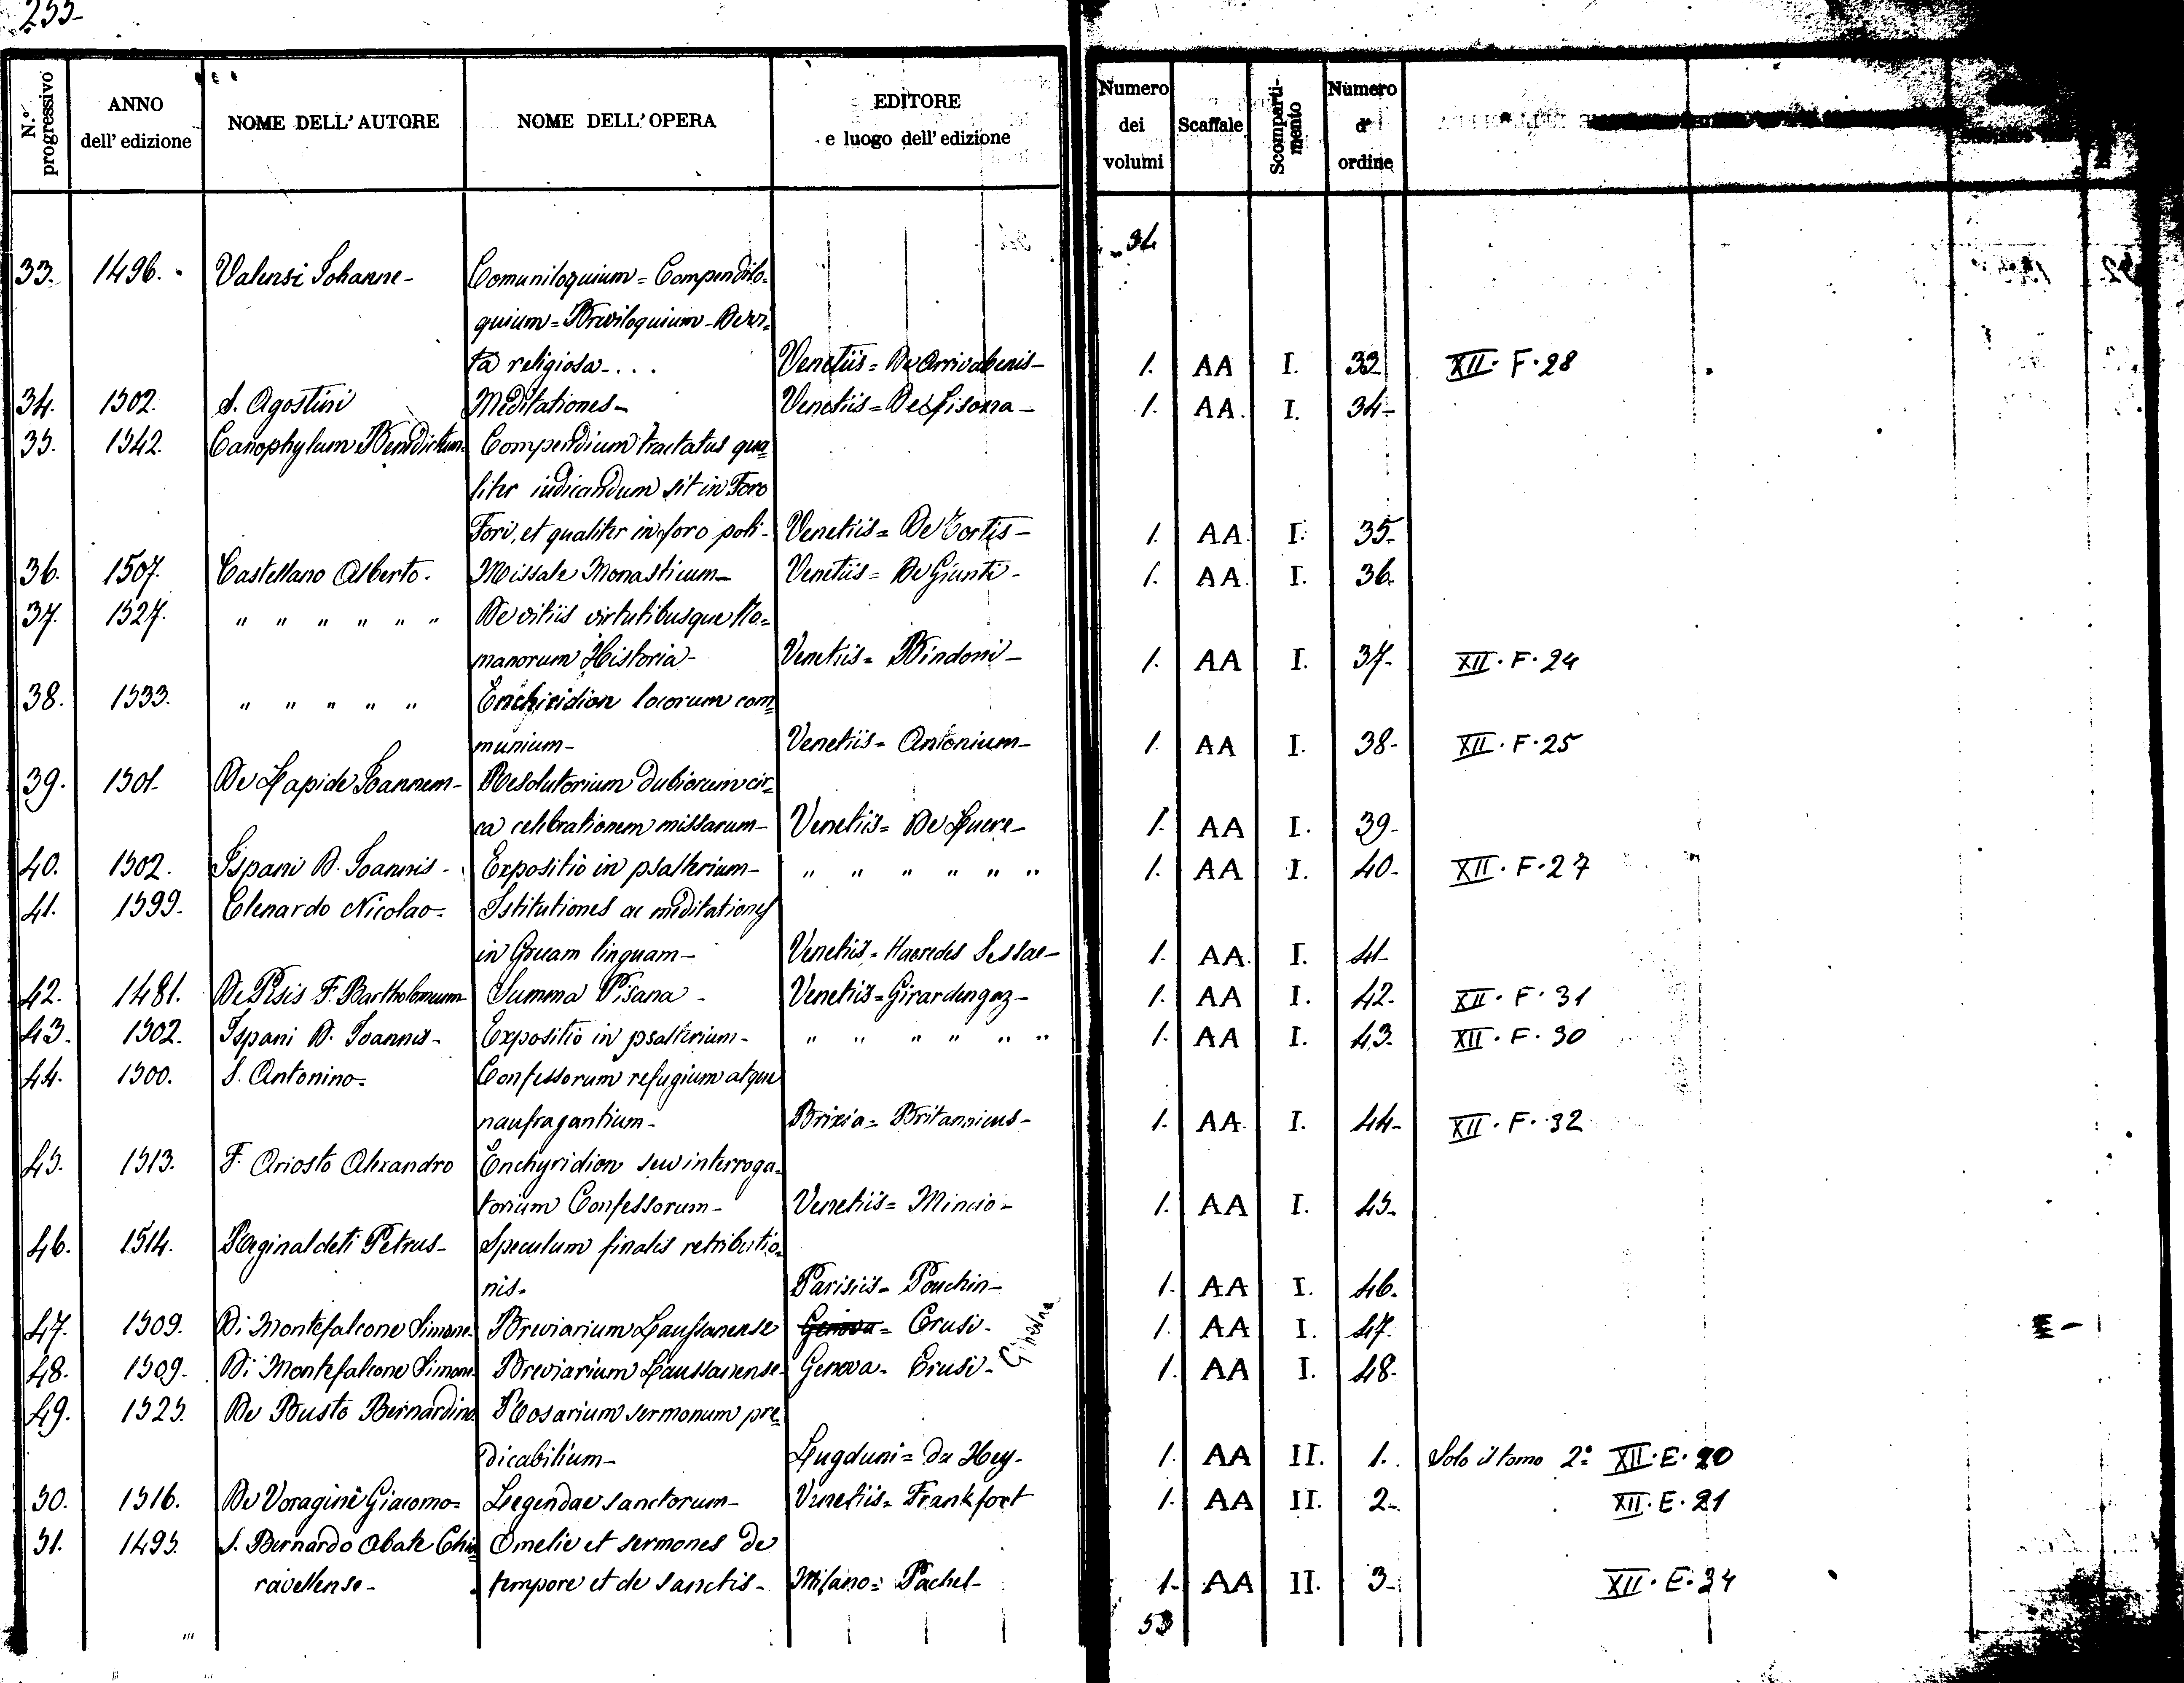 255-
N.° progressivo | ANNO dell' edizione | NOME DELL' AUTORE | NOME DELL' OPERA | EDITORE e luogo dell' edizione | Numero dei volumi | Scaffale | Scomparti-mento | Numero d' ordine
34
33. 1496. Valensi Johanne- Comuniloquium = Compendilo=
quium = Breviloquium - De vi=
ta religiosa - . . . Venetiis = De Arrivabenis - 1. AA I. 33 XII. F. 28
34. 1502. S. Agostini Meditationes - Venetiis = De Lisona - 1. AA. I. 34-
35. 1542. Canophylum Benedictum Compendium tractatus qua=
liter iudicandum sit in Foro
Fori, et qualiter in foro poli - Venetiis = De Tortis - 1. AA. I. 35-
36. 1507. Castellano Alberto. Missale Monasticum - Venetiis = De Giunti - 1. AA. I. 36.
37. 1527. " " " " " " De vitiis virtutibusque Ro=
manorum Historia - Venetiis = Bindoni - 1. AA I. 37- XII. F. 24
38. 1533. " " " " " Enchiridion locorum com=
munium - Venetiis = Antonium - 1. AA I. 38- XII. F. 25
39. 1501- De Lapide Joannem - Resolutorium dubiorum cir=
ca celebrationem missarum - Venetiis = De Luere - 1. AA I. 39-
40. 1502. Ispani D. Joannis - Expositio in psalterium - " " " " " " 1. AA I. 40- XII. F. 27
41. 1599. Clenardo Nicolao = Istitutiones ac meditationes
in Grecam linguam - Venetiis = Haeredes Sessae - 1. AA. I. 41-
42. 1481. De Pisis F. Bartholomeum Summa Pisana - Venetiis = Girardengoz - 1. AA I. 42- XII. F. 31
43. 1502. Ispani D. Joannis - Expositio in psalterium - " " " " " " 1. AA I. 43- XII. F. 30
44. 1500. S. Antonino = Confessorum refugium atque
naufragantium - Brixia = Britannicus - 1. AA. I. 44- XII. F. 32
45. 1513. F. Ariosto Alexandro Enchyridion seu interroga=
torium Confessorum - Venetiis = Mincio - 1. AA I. 45-
46. 1514. Reginaldeti Petrus - Speculum finalis retributio=
nis - Parisiis = Pouchin - 1. AA I. 46.
47. 1509. Di Montefalcone Simone Breviarium Laussanense Genova = Crusi - Ginevra 1. AA I. 47.
48. 1509. Di Montefalcone Simone Breviarium Laussanense - Genova - Crusi - 1. AA I. 48-
49. 1525. De Busto Bernardino Rosarium sermonum pre=
dicabilium - Lugduni = da Hey - 1. AA II. 1. Solo il tomo 2° XII. E. 20
50. 1516. De Voragine Giacomo = Legendae sanctorum - Venetiis = Frankfort 1. AA II. 2- XII. E. 21
51. 1495. S. Bernardo Abate Chia= Omelie et sermones de
ravellense - tempore et de sanctis - Milano = Pachel - 1- AA II. 3- XII. E. 34
53